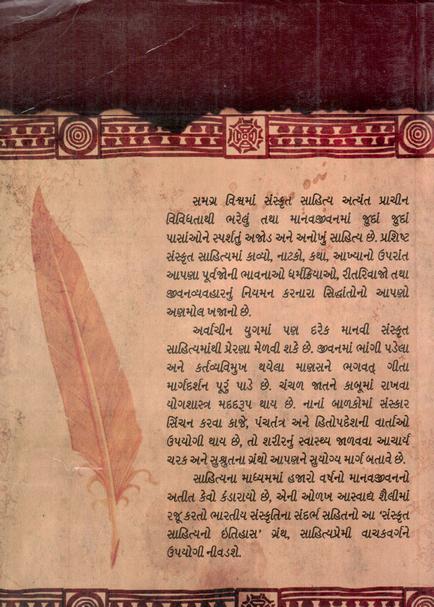 સમગ્ર વિશ્વમાં સંસ્કૃત સાહિત્ય અત્યંત પ્રાચીન
વિવિધતાથી ભરેલું તથા માનવજીવનમાં જુદાં જુદાં
પાસાંઓને સ્પર્શતું અજોડ અને અનોખું સાહિત્ય છે. પ્રશિષ્ટ
સંસ્કૃત સાહિત્યમાં કાવ્યો, નાટકો, કથા, આખ્યાનો ઉપરાંત
આપણા પૂર્વજોની ભાવનાઓ ધર્મક્રિયાઓ, રીતરિવાજો તથા
જીવનવ્યવહારનું નિયમન કરનારા સિદ્ધાંતોનો આપણો
અણમોલ ખજાનો છે.
અર્વાચીન યુગમાં પણ દરેક માનવી સંસ્કૃત
સાહિત્યમાંથી પ્રેરણા મેળવી શકે છે. જીવનમાં ભાંગી પડેલા
અને કર્તવ્યવિમુખ થયેલા માણસને ભગવત્ ગીતા
માર્ગદર્શન પૂરું પાડે છે. ચંચળ જાતને કાબૂમાં રાખવા
યોગશાસ્ત્ર મદદરૂપ થાય છે. નાનાં બાળકોમાં સંસ્કાર
સિંચન કરવા કાજે, પંચતંત્ર અને હિતોપદેશની વાર્તાઓ
ઉપયોગી થાય છે, તો શરીરનું સ્વાસ્થ્ય જાળવવા આચાર્ય
ચરક અને સુશ્રુતના ગ્રંથો આપણને સુયોગ્ય માર્ગ બતાવે છે.
સાહિત્યના માધ્યમમાં હજારો વર્ષનો માનવજીવનનો
અતીત કેવો કંડારાયો છે, એની ઓળખ આસ્વાદ્ય શૈલીમાં
રજૂ કરતો ભારતીય સંસ્કૃતિના સંદર્ભ સહિતનો આ ‘સંસ્કૃત
સાહિત્યનો ઇતિહાસ’ ગ્રંથ, સાહિત્યપ્રેમી વાચકવર્ગને
ઉપયોગી નીવડશે.